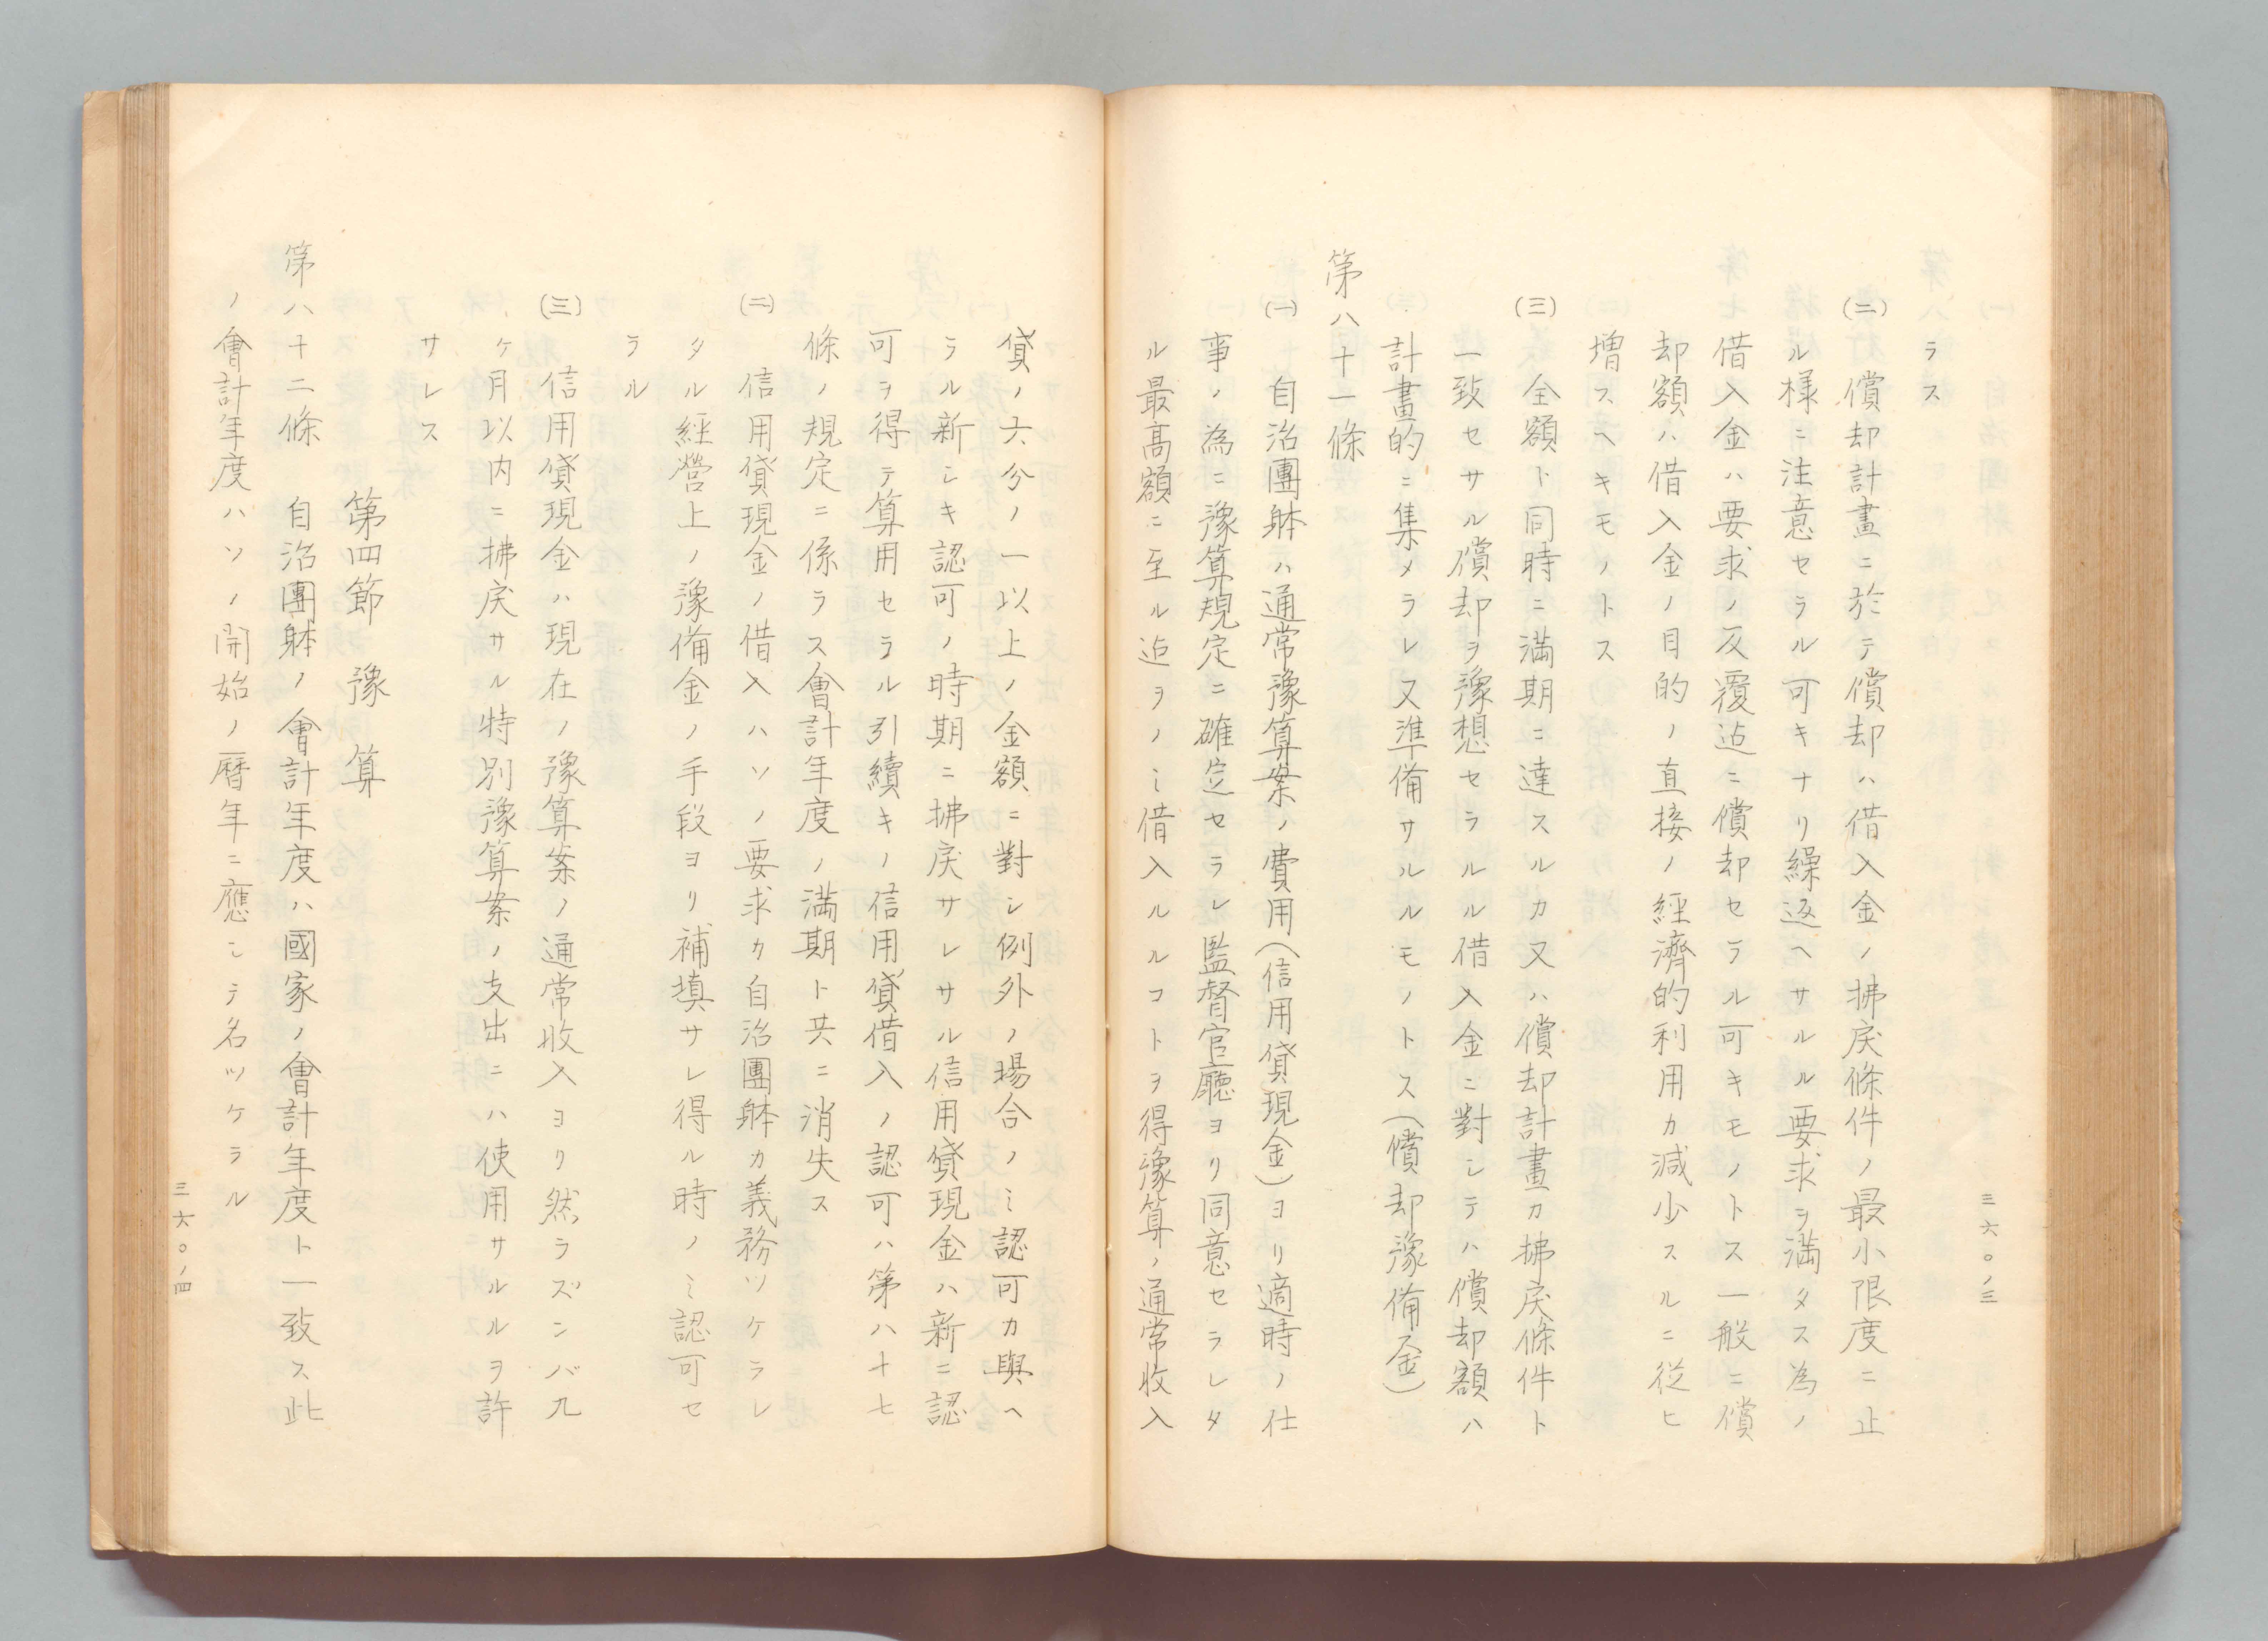 三六〇ノ三
ラス
(二) 償却計畫ニ於テ償却ハ借入金ノ拂戻條件ノ最小限度ニ止
ル様ニ注意セラル可キナリ繰返ヘサルル要求ヲ満タス為ノ
借入金ハ要求ノ反覆迄ニ償却セラル可キモノトス一般ニ償
却額ハ借入金ノ目的ノ直接ノ經濟的利用カ減少スルニ從ヒ
増スヘキモノトス
(三) 全額ト同時ニ満期ニ達スルカ又ハ償却計畫カ拂戻條件ト
一致セサル償却ヲ豫想セラルル借入金ニ對シテハ償却額ハ
計畫的ニ集メラレ又準備サルルモノトス(償却豫備金)
第八十一條
(一) 自治團躰ハ通常豫算案ノ費用(信用貸現金)ヨリ適時ノ仕
事ノ為ニ豫算規定ニ確定セラレ監督官廳ヨリ同意セラレタ
ル最高額ニ至ル迄ヲノミ借入ルルコトヲ得豫算ノ通常收入
貸ノ六分ノ一以上ノ金額ニ對シ例外ノ場合ノミ認可カ與ヘ
ラル新シキ認可ノ時期ニ拂戻サレサル信用貸現金ハ新ニ認
可ヲ得テ算用セラル引續キノ信用貸借入ノ認可ハ第八十七
條ノ規定ニ係ラス會計年度ノ満期ト共ニ消失ス
(二) 信用貸現金ノ借入ハソノ要求カ自治團躰カ義務ツケラレ
タル經營上ノ豫備金ノ手段ヨリ補填サレ得ル時ノミ認可セ
ラル
(三) 信用貸現金ハ現在ノ豫算案ノ通常收入ヨリ然ラズンバ九
ケ月以内ニ拂戻サル特別豫算案ノ支出ニハ使用サルルヲ許
サレス
第四節 豫算
第八十二條 自治團躰ノ會計年度ハ國家ノ會計年度ト一致ス此
ノ會計年度ハソノ開始ノ暦年ニ應シテ名ツケラル
三六〇ノ四